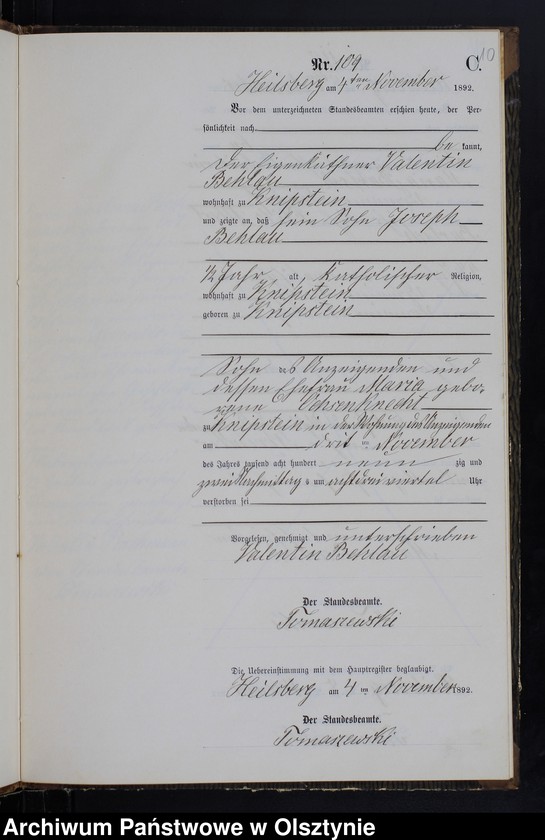 10
Nr. 109 C.
Heilsberg am 4ten November 1892.
Vor dem unterzeichneten Standesbeamten erschien heute, der Per-
sönlichkeit nach
be kannt,
der Eigenkäthner Valentin
Behlau
wohnhaft zu Knipstein
und zeigte an, daß sein Sohn Joseph
Behlau
Jahr alt, Katholischer Religion,
wohnhaft zu Knipstein
geboren zu Knipstein
Sohn des Anzeigenden und
dessen Ehefrau Maria gebo-
rene Ochsenknecht
zu Knipstein in der Wohnung des Anzeigenden
am drit ten November
des Jahres tausend acht hundert neun zig und
zwei Nachmittags um achtdreiviertel Uhr
verstorben sei
Vorgelesen, genehmigt und unterschrieben
Valentin Behlau
Der Standesbeamte.
Tomaszewski
Die Uebereinstimmung mit dem Hauptregister beglaubigt.
Heilsberg am 4 ten November 1892.
Der Standesbeamte.
Tomaszewski
Archiwum Państwowe w Olsztynie